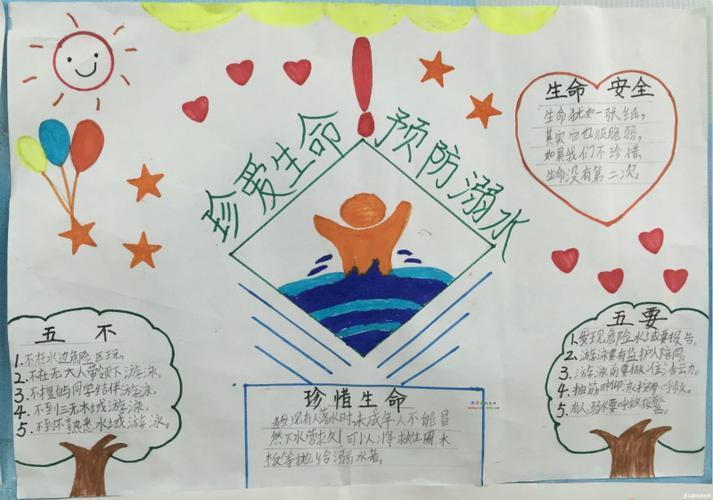 珍爱生命
预防溺水
生命 安全
生命犹如一张纸,
其实它也很脆弱,
如果我们不珍惜,
生命没有第二次。
五 不
1.不在水边危险区玩。
2.不在无大人带领下游泳。
3.不擅自与同学结伴游泳。
4.不到三无水域游泳。
5.不到不熟悉水域游泳。
五要
1.发现危险水域要报告。
2.游泳要有监护人陪同。
3.游泳前要做准备活动。
4.抽筋时仰泳
5.有人溺水要呼救报警。
珍惜生命
发现有人落水时,未成年人不能冒
然下水营救!可以将救生圈、木
板等抛给溺水者。